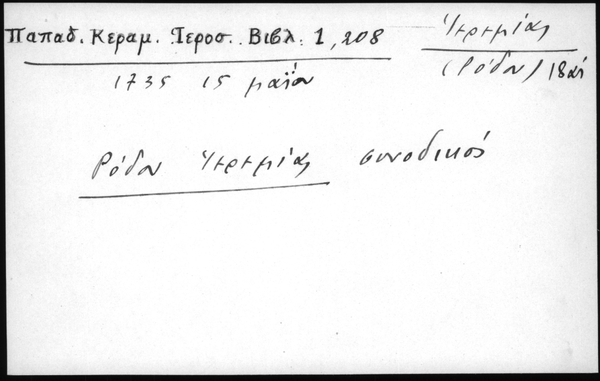 Παπαδ. Κεραμ. Ἱεροσ. Βιβλ. 1, 208
Ἱερεμίας
(Ρόδου) 18 αἰ
1735 15 μαΐου
Ρόδου Ἱερεμίας συνοδικός